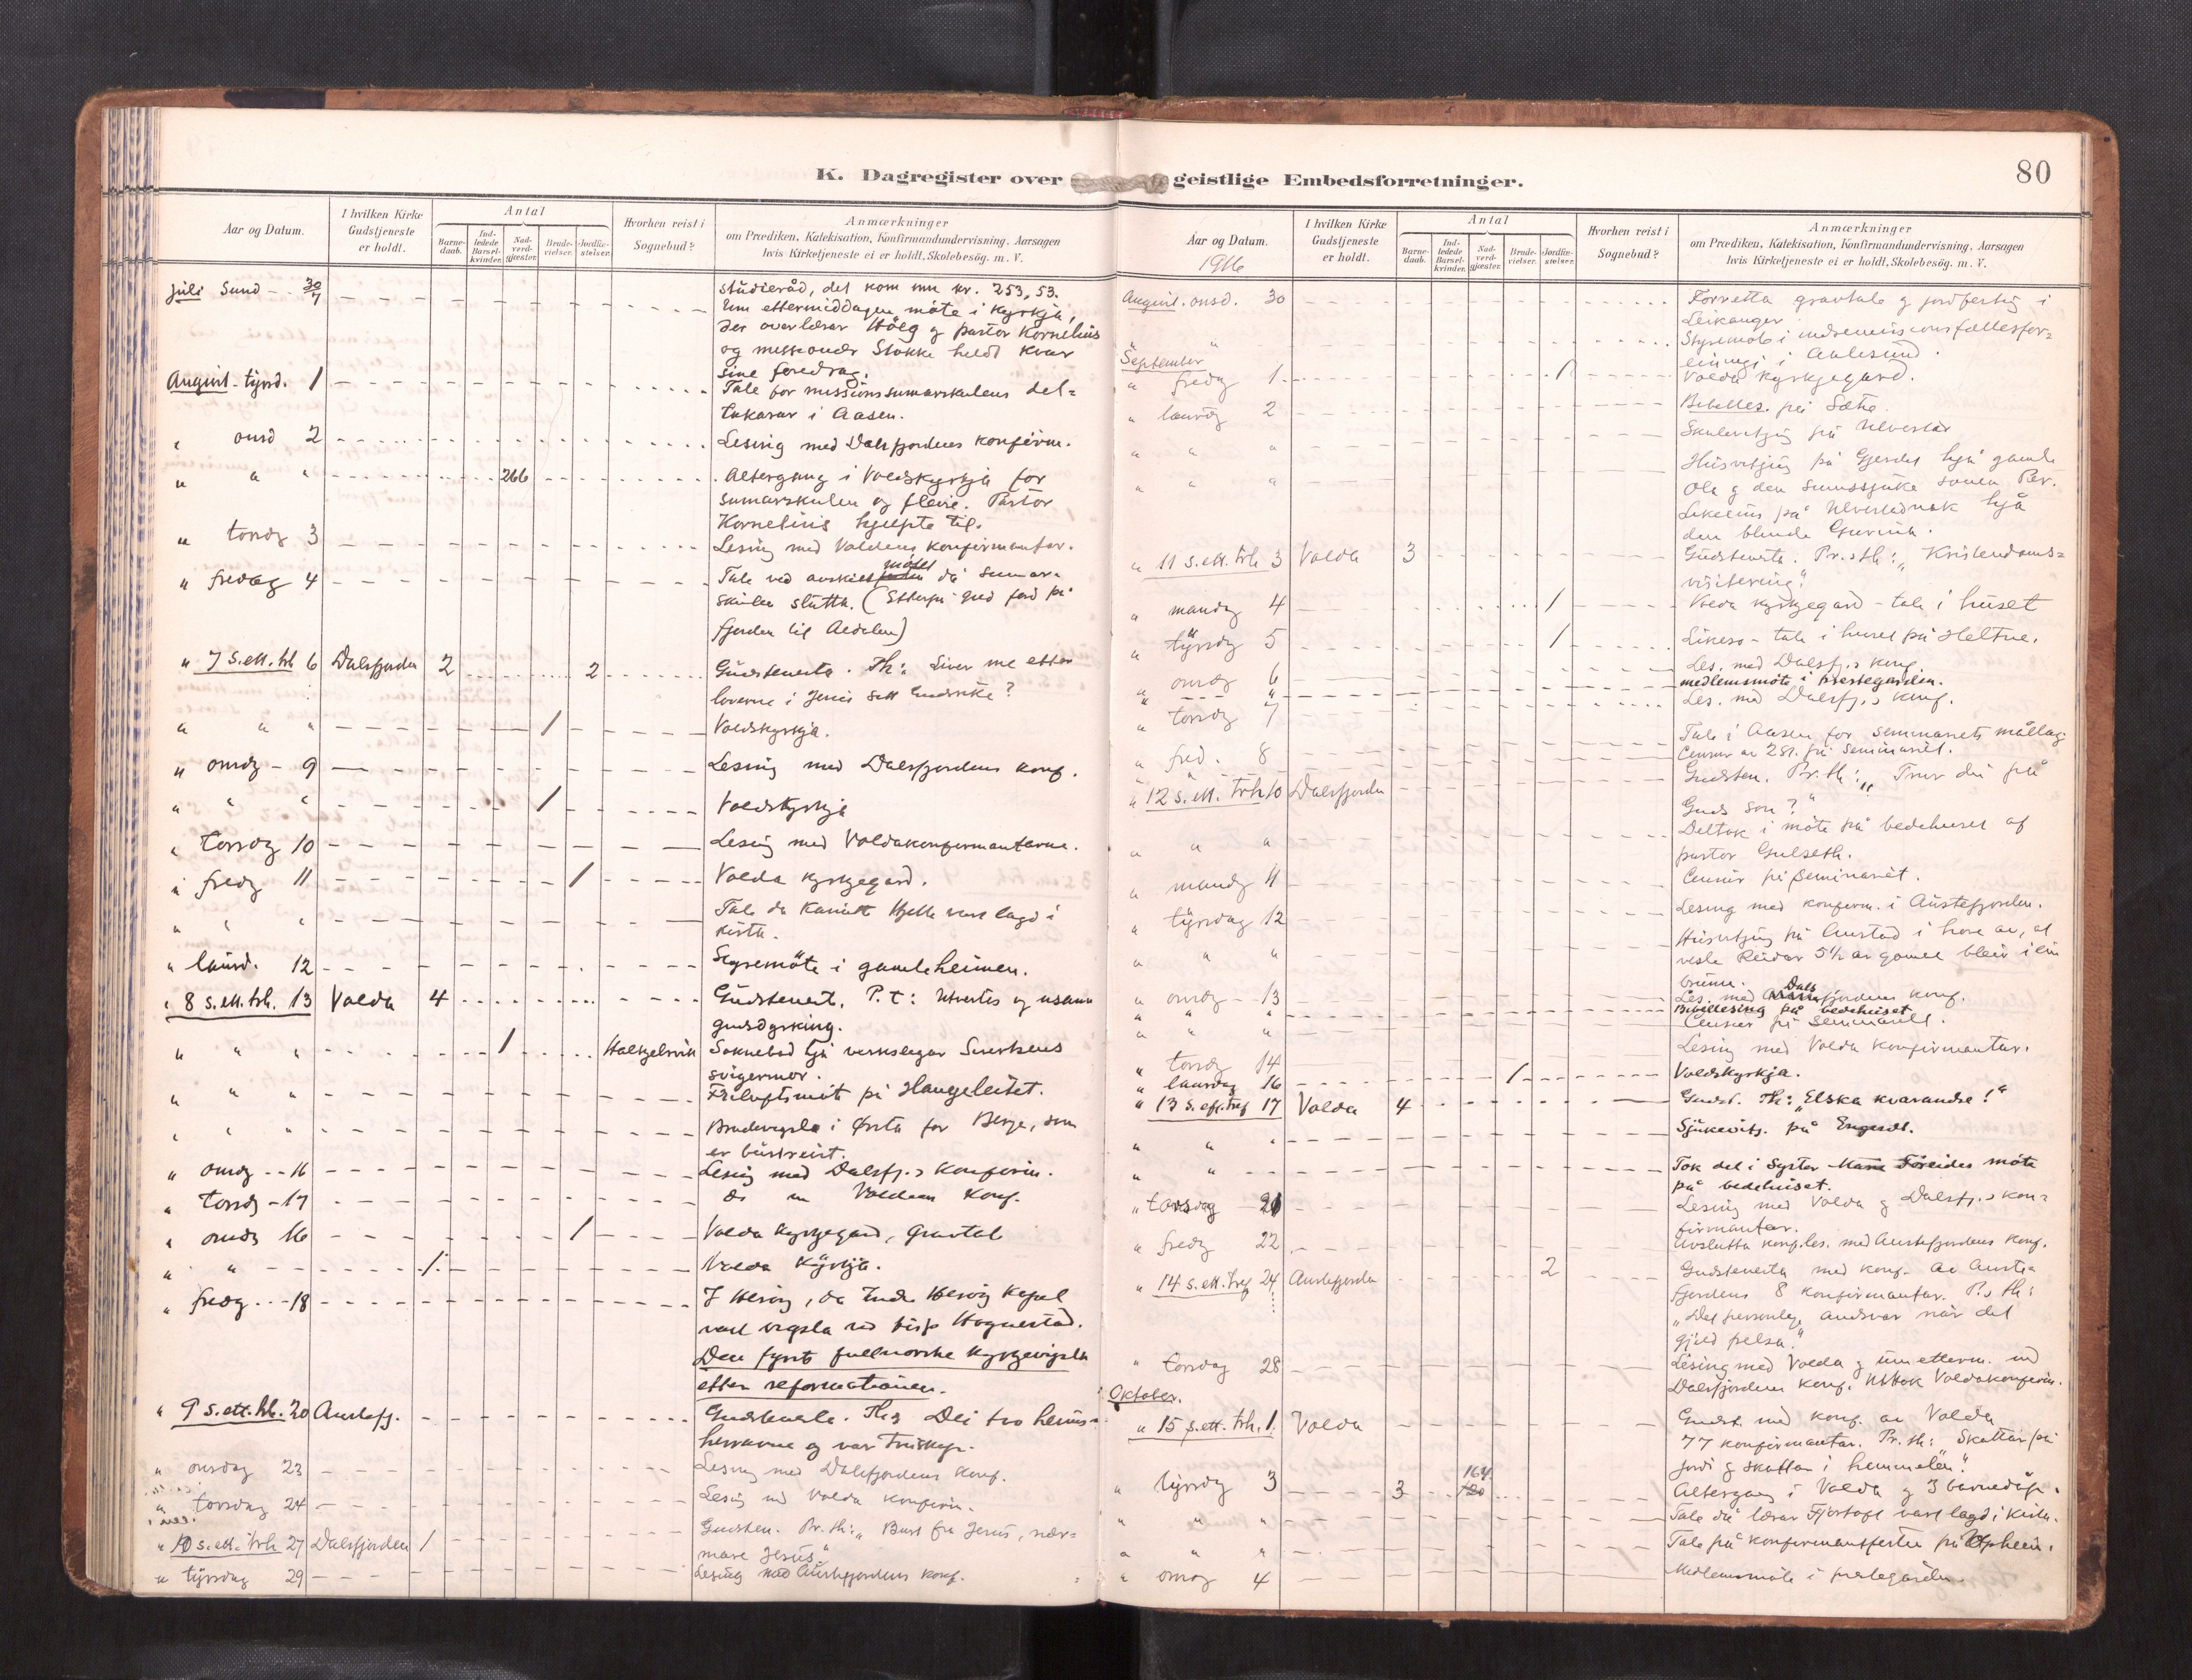 K. Dagregister over geistlige Embedsforretninger.
80
Aar og Datum.
I hvilken Kirke
Gudstjeneste
er holdt.
Antal
Barne-
daab.
Ind-
ledede
Barsel-
kvinder.
Nad-
verd-
gjæster.
Brude-
vielser.
Jordfæ-
stelser.
Hvorhen reist i
Sognebud?
Anmærkninger
om Prædiken, Katekisation, Konfirmandundervisning, Aarsagen
hvis Kirketjeneste ei er holdt, Skolebesøg. m. V.
juli Sund 30/7
studieråd, det kom inn kr. 253,53.
Um ettermiddagen möte i kyrkja,
der overlærar Höeg og pastor Kornelius
og missionær Stokke heldt kvar
sine foredrag.
August tyrsd. 1
Tale for missionssumarskulens del=
takarar i Aasen.
" onsd 2
Lesing med Dalsfjordens konfirm.
" " " 266
Altergang i Voldskyrkja for
sumarskulen og fleire. Pastor
Kornelius hjelpte til.
" torsdg 3
Lesing med Voldens konfirmantar.
" fredag 4
Tale ved avskilsmötet då sumar-
skulen slutta.
fjorden til Aedalen)
" 7 s. ett. trh 6 Dalsfjorden 2 2
Gudstenesta. Th: Liver me etter
loverne i Jesu sett Gudsrike?
" " " 1
Voldskyrkja.
" onsdg - 9
Lesing med Dalsfjordens konf.
" " " 1
Voldskyrkja
" Torsdag 10
Lesing med Voldakonfirmantarne.
" fredg 11 1
Volda kyrkjegard.
" " "
Tale da Hjelle vart lagd i
kista.
" laurd. 12
Styremöte i gamleheimen.
" 8 s. ett. trh. 13 Volda 4
Gudstenest. P.t: Utvertes og usann
gudsdyrking.
" " " 1
Soknebod hjå verkseigar Sivertsens
svigermor.
" " "
Friluftsmöte på Haugeleitet.
" " "
Brudevigsla i Örsta for Berge, som
er burtreist.
" onsdg - - 16
Lesing med Dalsfj.s konfirm.
" Torsdg - 17
Do m Voldens konf.
" onsdg 16 1
Volda kyrkjegard, Gravtale
" " 1
Volda Kyrkja.
" fredg - - 18
I Heröy, da Indre Heröy kapel
vart vigsla ved bisp Hognestad.
Den fyrste fullnorske kyrkjevigsla
etter reformationen.
" 9 s. ett. trh. 20 Austefj.
Gudstenesta. Th: Dei tvo heims=
herrarne og vår truskap.
" onsdag 23
Lesing med Dalsfjordens konf.
" torsdag 24
Lesing med Volda konfirm.
" 10 s. ett. trh 27 Dalsfjorden 1
Gudsten. Pr. th: " Burt frå Jesus, nær=
mare Jesus."
" tyrsdag 29
Lesing med Austefjordens konf.
Aar og Datum.
1916
I hvilken Kirke
Gudstjeneste
er holdt.
Antal
Barne-
daab.
Ind-
ledede
Barsel-
kvinder.
Nad-
verd-
gjæster.
Brude-
vielser.
Jordfæ-
stelser.
Hvorhen reist i
Sognebud?
Anmærkninger
om Prædiken, Katekisation, Konfirmandundervisning, Aarsagen
hvis Kirketjeneste ei er holdt, Skolebesög. m. V.
August. onsd. 30
Forretta gravtale og jordfesting i
Leikanger.
" "
Styremöte i indremissionsfellesfor=
eining i Aalesund.
September
" fredg 1 1
Volda kyrkjegard.
" laurdg 2
Bibelles. på Sætre.
" " "
Skulevitjing på Ulvestad
" " "
Husvitjing på Gjerdet hjå gamle
Ola og den sinnssjuke sonen Per.
Likeeins på hjå
den blinde
" 11 s. ett. trh 3 Volda 3
Gudstenesta. Pr. th: " Kristendoms=
visitering."
" mandg 4 1
Volda kyrkjegard - tale i huset
" tyrsdg 5 1
Likeso - tale i huset på Heltne.
" onsdg 6
Les. med Dalsfj.s konf.
" "
medlemsmöte i prestegarden.
" torsdg 7
Les. med Dalsfj.s konf.
" fred. 8
Tale i Aasen for seminarets mållag
Censur av 281. på seminariet.
" 12 s. ett. trh 10 Dalsfjorden
Gudsten. Pr. th: " Trur du på
Guds son?"
" " "
Deltok i möte på bedehuset af
pastor Gulseth.
" mandg 11
Censur på seminariet.
" tyrsdag 12
Lesing med konfirm. i Austefjorden.
" " "
Husvitjing på Aurstad i höve av, at
vesle Reidar 5½ år gamel bleiv i ein
brunn.
" onsdg - 13
Les. med Dalsfjordens konf.
" " "
Bibellesing på bedehuset
" " "
Censur på seminariet.
" torsdg 14
Lesing med Volda konfirmantar.
" laurdag 16 1
Voldskyrkja.
" 13 s. eft. tref 17 Volda 4
Gudst. Th: "Elska kvarandre!"
" " "
Sjukevitj. på Engeset.
" "
Tok del i Syster Marie Föreides möte
på bedehuset.
" torsdag 21
Lesing med Volda og Dalsfj.s kon=
firmantar.
" fredg 22
Avslutta konf.les. med Austefjordens konf.
" 14 s. ett. tref 24 Austefjorden 2
Gudstenesta med konf. av Auste=
fjordens 8 konfirmantar. P.s th:
"Det personlege andsvar når det
gjeld frelsa."
" torsdag 28
Lesing med Volda og um etterm. med
Dalsfjordens konf. Voldakonfirm.
Oktober.
" 15 s. ett. trh. 1. Volda
Gudst. med konf. av Volda
77 konfirmantar. Pr. th: "Skattar på
jordi og skattar i himmelen."
" tyrsdg 3 3 164
Altergang i Volda og 3 barnedåp.
" " "
Tale då lærar Fjörtoft vart lagd i kista.
" " "
Tale på konfirmantfesten på Uppheim.
" onsdg 4
Medlemsmöte i prestegarden.